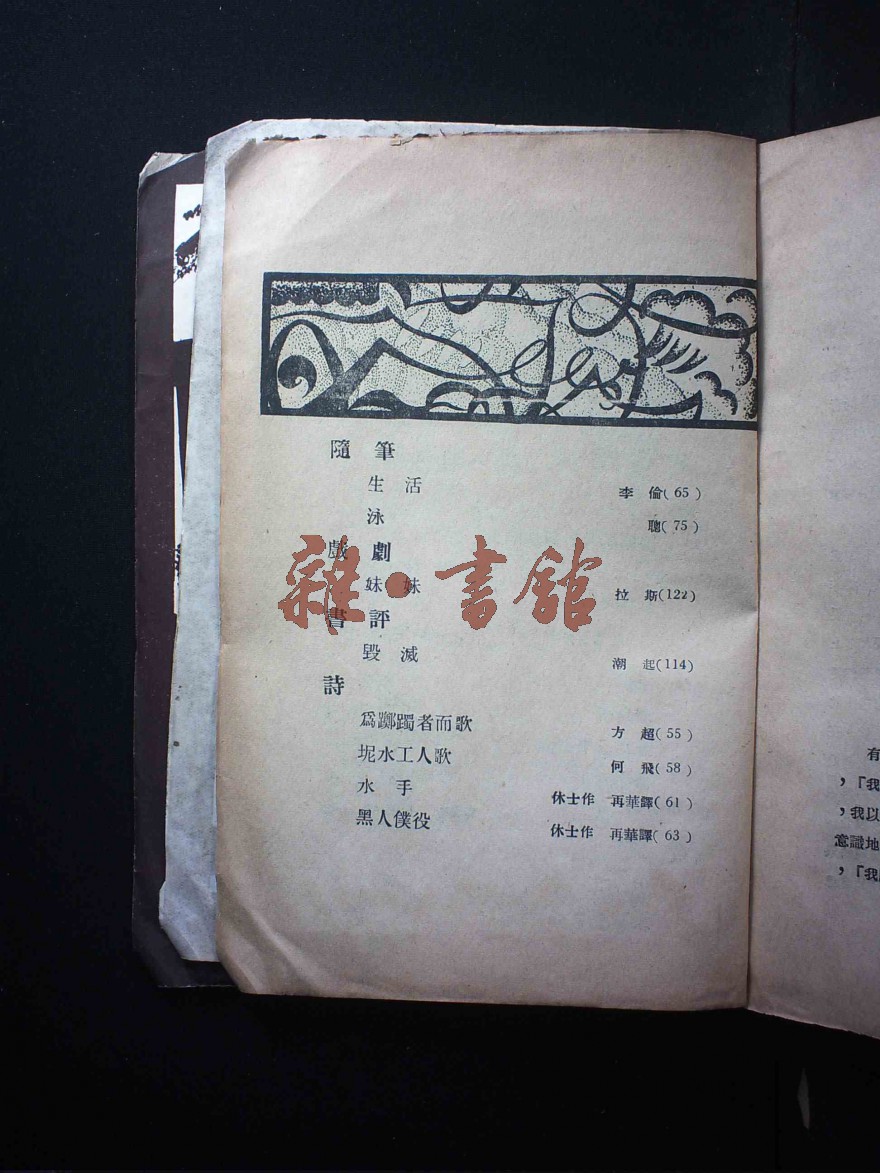 隨筆
生活 李倫(65)
泳 聰(75)
戲劇
妹妹 拉斯(122)
書評
毀滅 潮起(114)
詩
爲躑躅者而歌 方超(55)
坭水工人歌 何飛(58)
水手 休士作 再華譯(61)
黑人僕役 休士作 再華譯(63)
雜·書館
有
，「我
，我以
意識地
，「我